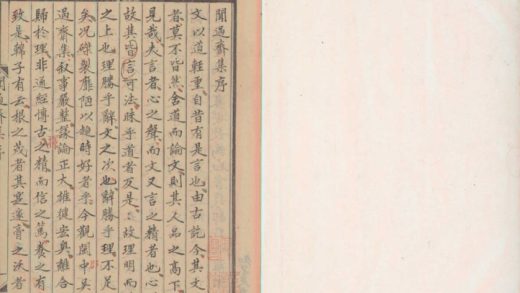 聞過齋集序
文以道輕重自昔有是言也由古訖今其文
者莫不皆然舍道而論文則其人品之高下
見哉夫言者心之聲而文又言之精者也心
故其皆言可法昧乎道者反是故理明而
之上也理勝乎辭文之次也辭勝乎理不足
矣况磔裂靡陋以趍時好者乎今觀閩中吳
過齋集叙事嚴整議論正大雄健宏奧離合
歸於理非通經博古之精而信之篤養之有
致是韓子有云根之茂者其實遂膏之沃者